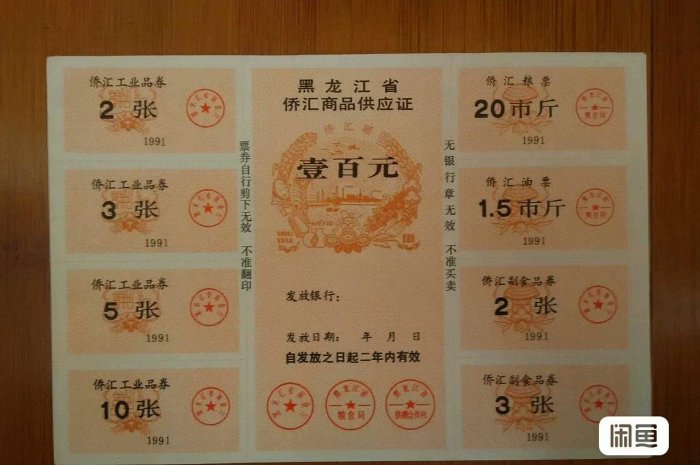 侨汇工业品券
2 张
1991
侨汇工业品券
3 张
1991
侨汇工业品券
5 张
1991
侨汇工业品券
10 张
1991
票券自行剪下无效 不准翻印
黑龙江省
侨汇商品供应证
侨汇额
壹百元
发放银行：
发放日期： 年 月 日
自发放之日起二年内有效
黑龙江省
粮食局
黑龙江省
供销合作社
无银行章无效 不准买卖
侨汇粮票
20 市斤
1991
黑龙江省
粮食局
侨汇油票
1.5 市斤
1991
黑龙江省
粮食局
侨汇副食品券
2 张
1991
侨汇副食品券
3 张
1991
闲鱼